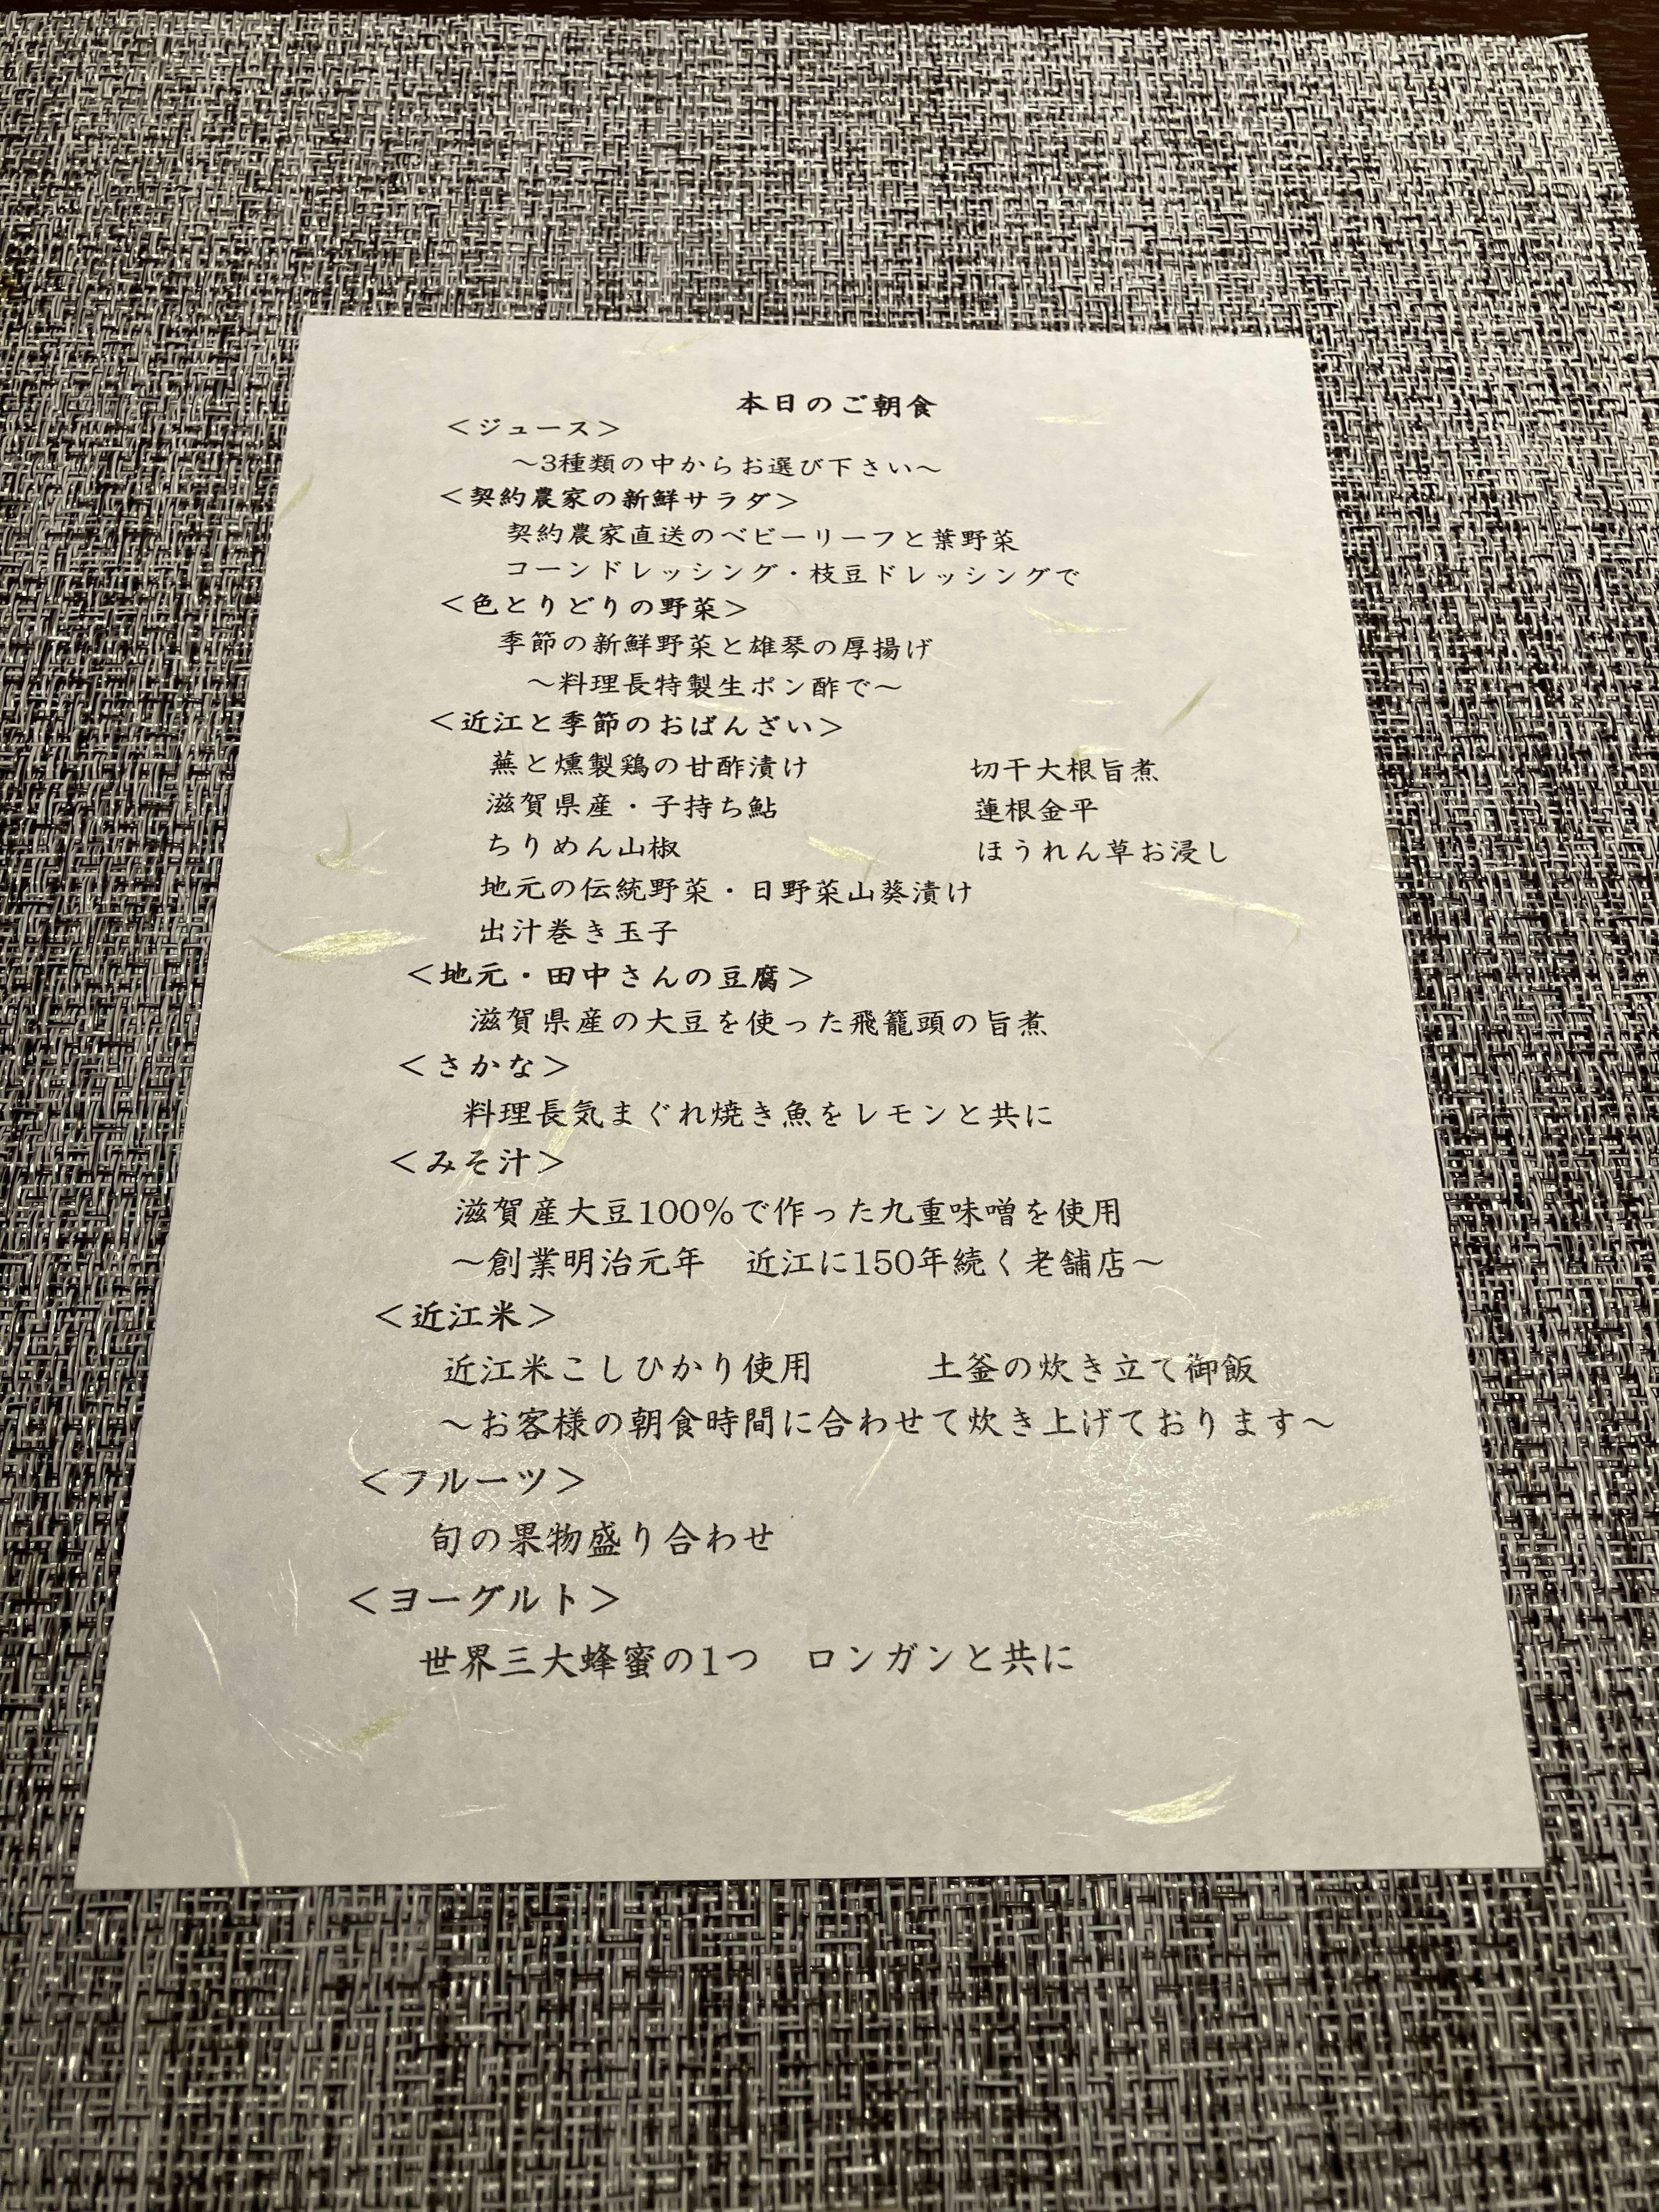 本日のご朝食
＜ジュース＞
～3種類の中からお選び下さい～
＜契約農家の新鮮サラダ＞
契約農家直送のベビーリーフと葉野菜
コーンドレッシング・枝豆ドレッシングで
＜色とりどりの野菜＞
季節の新鮮野菜と雄琴の厚揚げ
～料理長特製生ポン酢で～
＜近江と季節のおばんざい＞
蕪と燻製鶏の甘酢漬け　切干大根旨煮
滋賀県産・子持ち鮎　蓮根金平
ちりめん山椒　ほうれん草お浸し
地元の伝統野菜・日野菜山葵漬け
出汁巻き玉子
＜地元・田中さんの豆腐＞
滋賀県産の大豆を使った飛籠頭の旨煮
＜さかな＞
料理長気まぐれ焼き魚をレモンと共に
＜みそ汁＞
滋賀産大豆100％で作った九重味噌を使用
～創業明治元年　近江に150年続く老舗店～
＜近江米＞
近江米こしひかり使用　土釜の炊き立て御飯
～お客様の朝食時間に合わせて炊き上げております～
＜フルーツ＞
旬の果物盛り合わせ
＜ヨーグルト＞
世界三大蜂蜜の1つ　ロンガンと共に